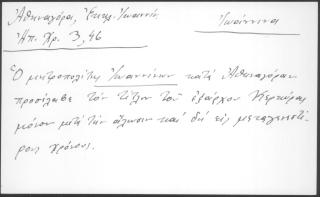 Ἀθηναγόρα, Ἐκκλ. Ἰωαννίν.
Ἰωάννινα
Ἠπ. Χρ. 3, 46
Ὁ μητροπολίτης Ἰωαννίνων κατὰ Ἀθηναγόραν
προσέλαβε τὸν τίτλον τοῦ ἐξάρχου Κερκύρας
μόνον μετὰ τὴν ἅλωσιν καὶ δὴ εἰς μεταγενεστέ-
ρους χρόνους.